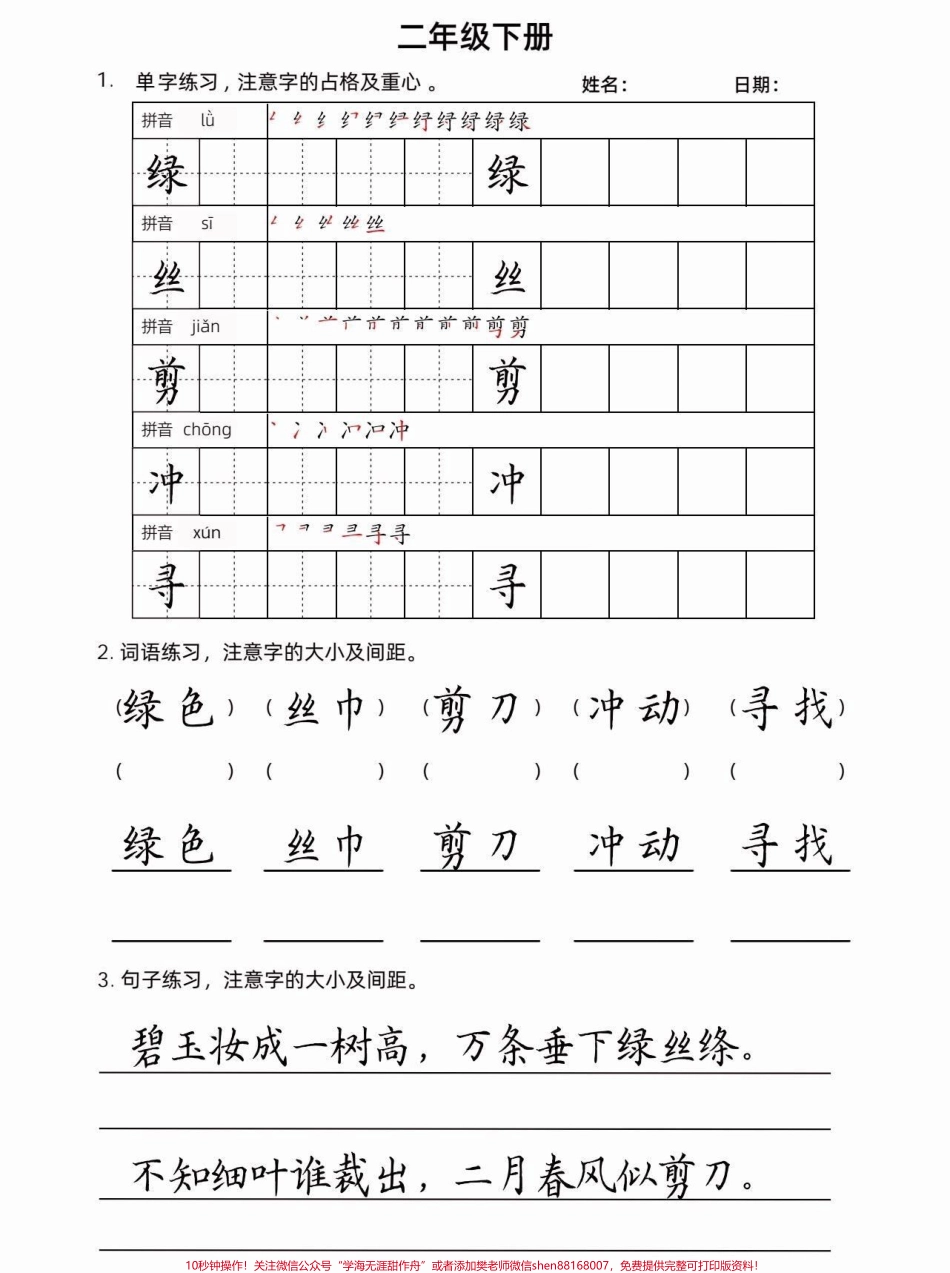 二年级下册
1. 单字练习，注意字的占格及重心。 姓名： 日期：
拼音 lǜ
绿 绿
拼音 sī
丝 丝
拼音 jiǎn
剪 剪
拼音 chōng
冲 冲
拼音 xún
寻 寻
2. 词语练习，注意字的大小及间距。
（绿色）（丝巾）（剪刀）（冲动）（寻找）
（ ）（ ）（ ）（ ）（ ）
绿色 丝巾 剪刀 冲动 寻找
3. 句子练习，注意字的大小及间距。
碧玉妆成一树高，万条垂下绿丝绦。
不知细叶谁裁出，二月春风似剪刀。
10秒钟操作！关注微信公众号“学海无涯甜作舟”或者添加樊老师微信shen88168007，免费提供完整可打印版资料！